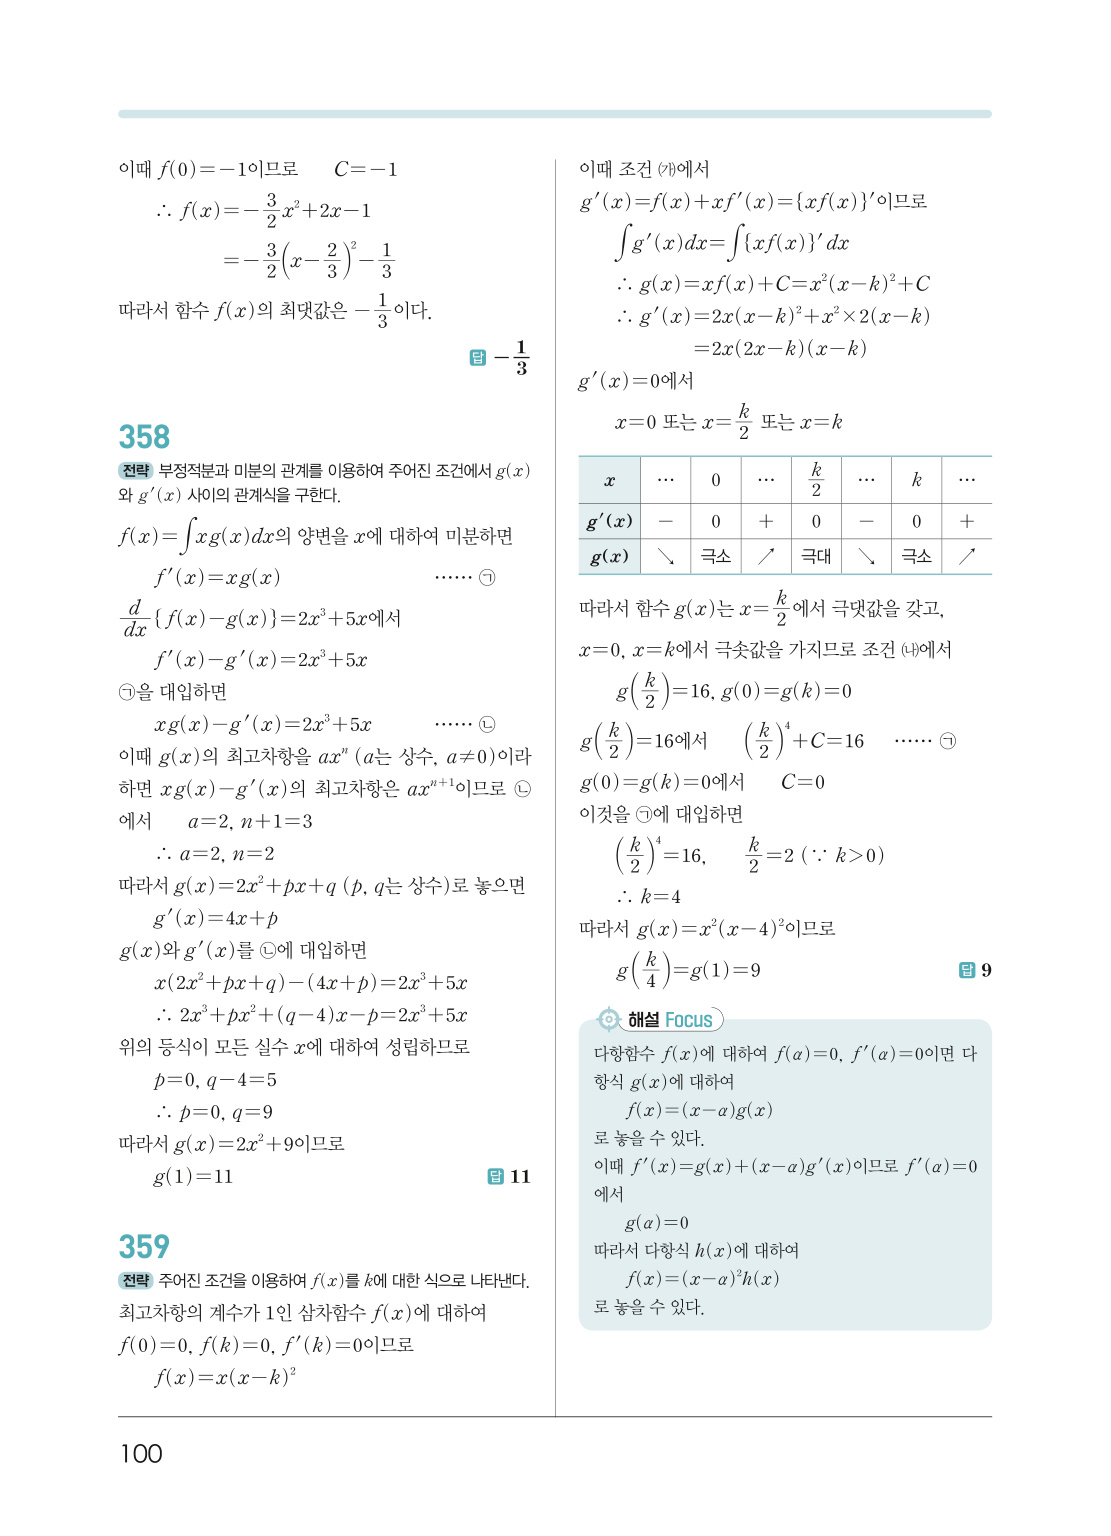 이때 f(0)=-1이므로 C=-1
∴ f(x)=-3/2x²+2x-1
=-3/2(x-2/3)²-1/3
따라서 함수 f(x)의 최댓값은 -1/3이다.
답 -1/3
358
전략 부정적분과 미분의 관계를 이용하여 주어진 조건에서 g(x)
와 g′(x) 사이의 관계식을 구한다.
f(x)=∫xg(x)dx의 양변을 x에 대하여 미분하면
f′(x)=xg(x) ······ ㉠
d/dx{f(x)-g(x)}=2x³+5x에서
f′(x)-g′(x)=2x³+5x
㉠을 대입하면
xg(x)-g′(x)=2x³+5x ······ ㉡
이때 g(x)의 최고차항을 axⁿ (a는 상수, a≠0)이라
하면 xg(x)-g′(x)의 최고차항은 axⁿ⁺¹이므로 ㉡
에서 a=2, n+1=3
∴ a=2, n=2
따라서 g(x)=2x²+px+q (p, q는 상수)로 놓으면
g′(x)=4x+p
g(x)와 g′(x)를 ㉡에 대입하면
x(2x²+px+q)-(4x+p)=2x³+5x
∴ 2x³+px²+(q-4)x-p=2x³+5x
위의 등식이 모든 실수 x에 대하여 성립하므로
p=0, q-4=5
∴ p=0, q=9
따라서 g(x)=2x²+9이므로
g(1)=11 답 11
359
전략 주어진 조건을 이용하여 f(x)를 k에 대한 식으로 나타낸다.
최고차항의 계수가 1인 삼차함수 f(x)에 대하여
f(0)=0, f(k)=0, f′(k)=0이므로
f(x)=x(x-k)²
이때 조건 ㈎에서
g′(x)=f(x)+xf′(x)={xf(x)}′이므로
∫g′(x)dx=∫{xf(x)}′dx
∴ g(x)=xf(x)+C=x²(x-k)²+C
∴ g′(x)=2x(x-k)²+x²×2(x-k)
=2x(2x-k)(x-k)
g′(x)=0에서
x=0 또는 x=k/2 또는 x=k
x ··· 0 ··· k/2 ··· k ···
g′(x) - 0 + 0 - 0 +
g(x) ↘ 극소 ↗ 극대 ↘ 극소 ↗
따라서 함수 g(x)는 x=k/2에서 극댓값을 갖고,
x=0, x=k에서 극솟값을 가지므로 조건 ㈏에서
g(k/2)=16, g(0)=g(k)=0
g(k/2)=16에서 (k/2)⁴+C=16 ······ ㉠
g(0)=g(k)=0에서 C=0
이것을 ㉠에 대입하면
(k/2)⁴=16, k/2=2 (∵ k>0)
∴ k=4
따라서 g(x)=x²(x-4)²이므로
g(k/4)=g(1)=9 답 9
해설 Focus
다항함수 f(x)에 대하여 f(α)=0, f′(α)=0이면 다
항식 g(x)에 대하여
f(x)=(x-α)g(x)
로 놓을 수 있다.
이때 f′(x)=g(x)+(x-α)g′(x)이므로 f′(α)=0
에서
g(α)=0
따라서 다항식 h(x)에 대하여
f(x)=(x-α)²h(x)
로 놓을 수 있다.
100